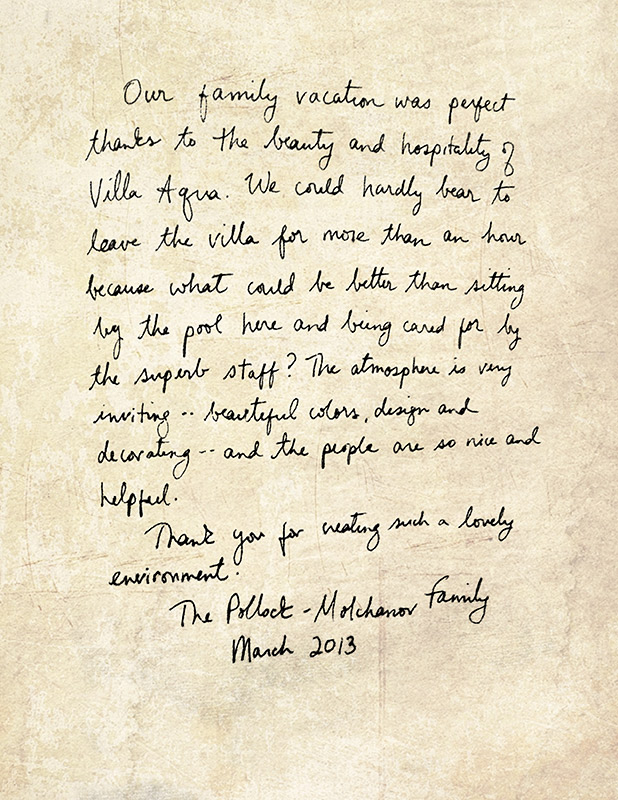 Our family vacation was perfect
thanks to the beauty and hospitality of
Villa Aqua. We could hardly bear to
leave the villa for more than an hour
because what could be better than sitting
by the pool here and being cared for by
the superb staff? The atmosphere is very
inviting -- beautiful colors, design and
decorating -- and the people are so nice and
helpful.
Thank you for creating such a lovely
environment.
The Pollock - Molchanov Family
March 2013